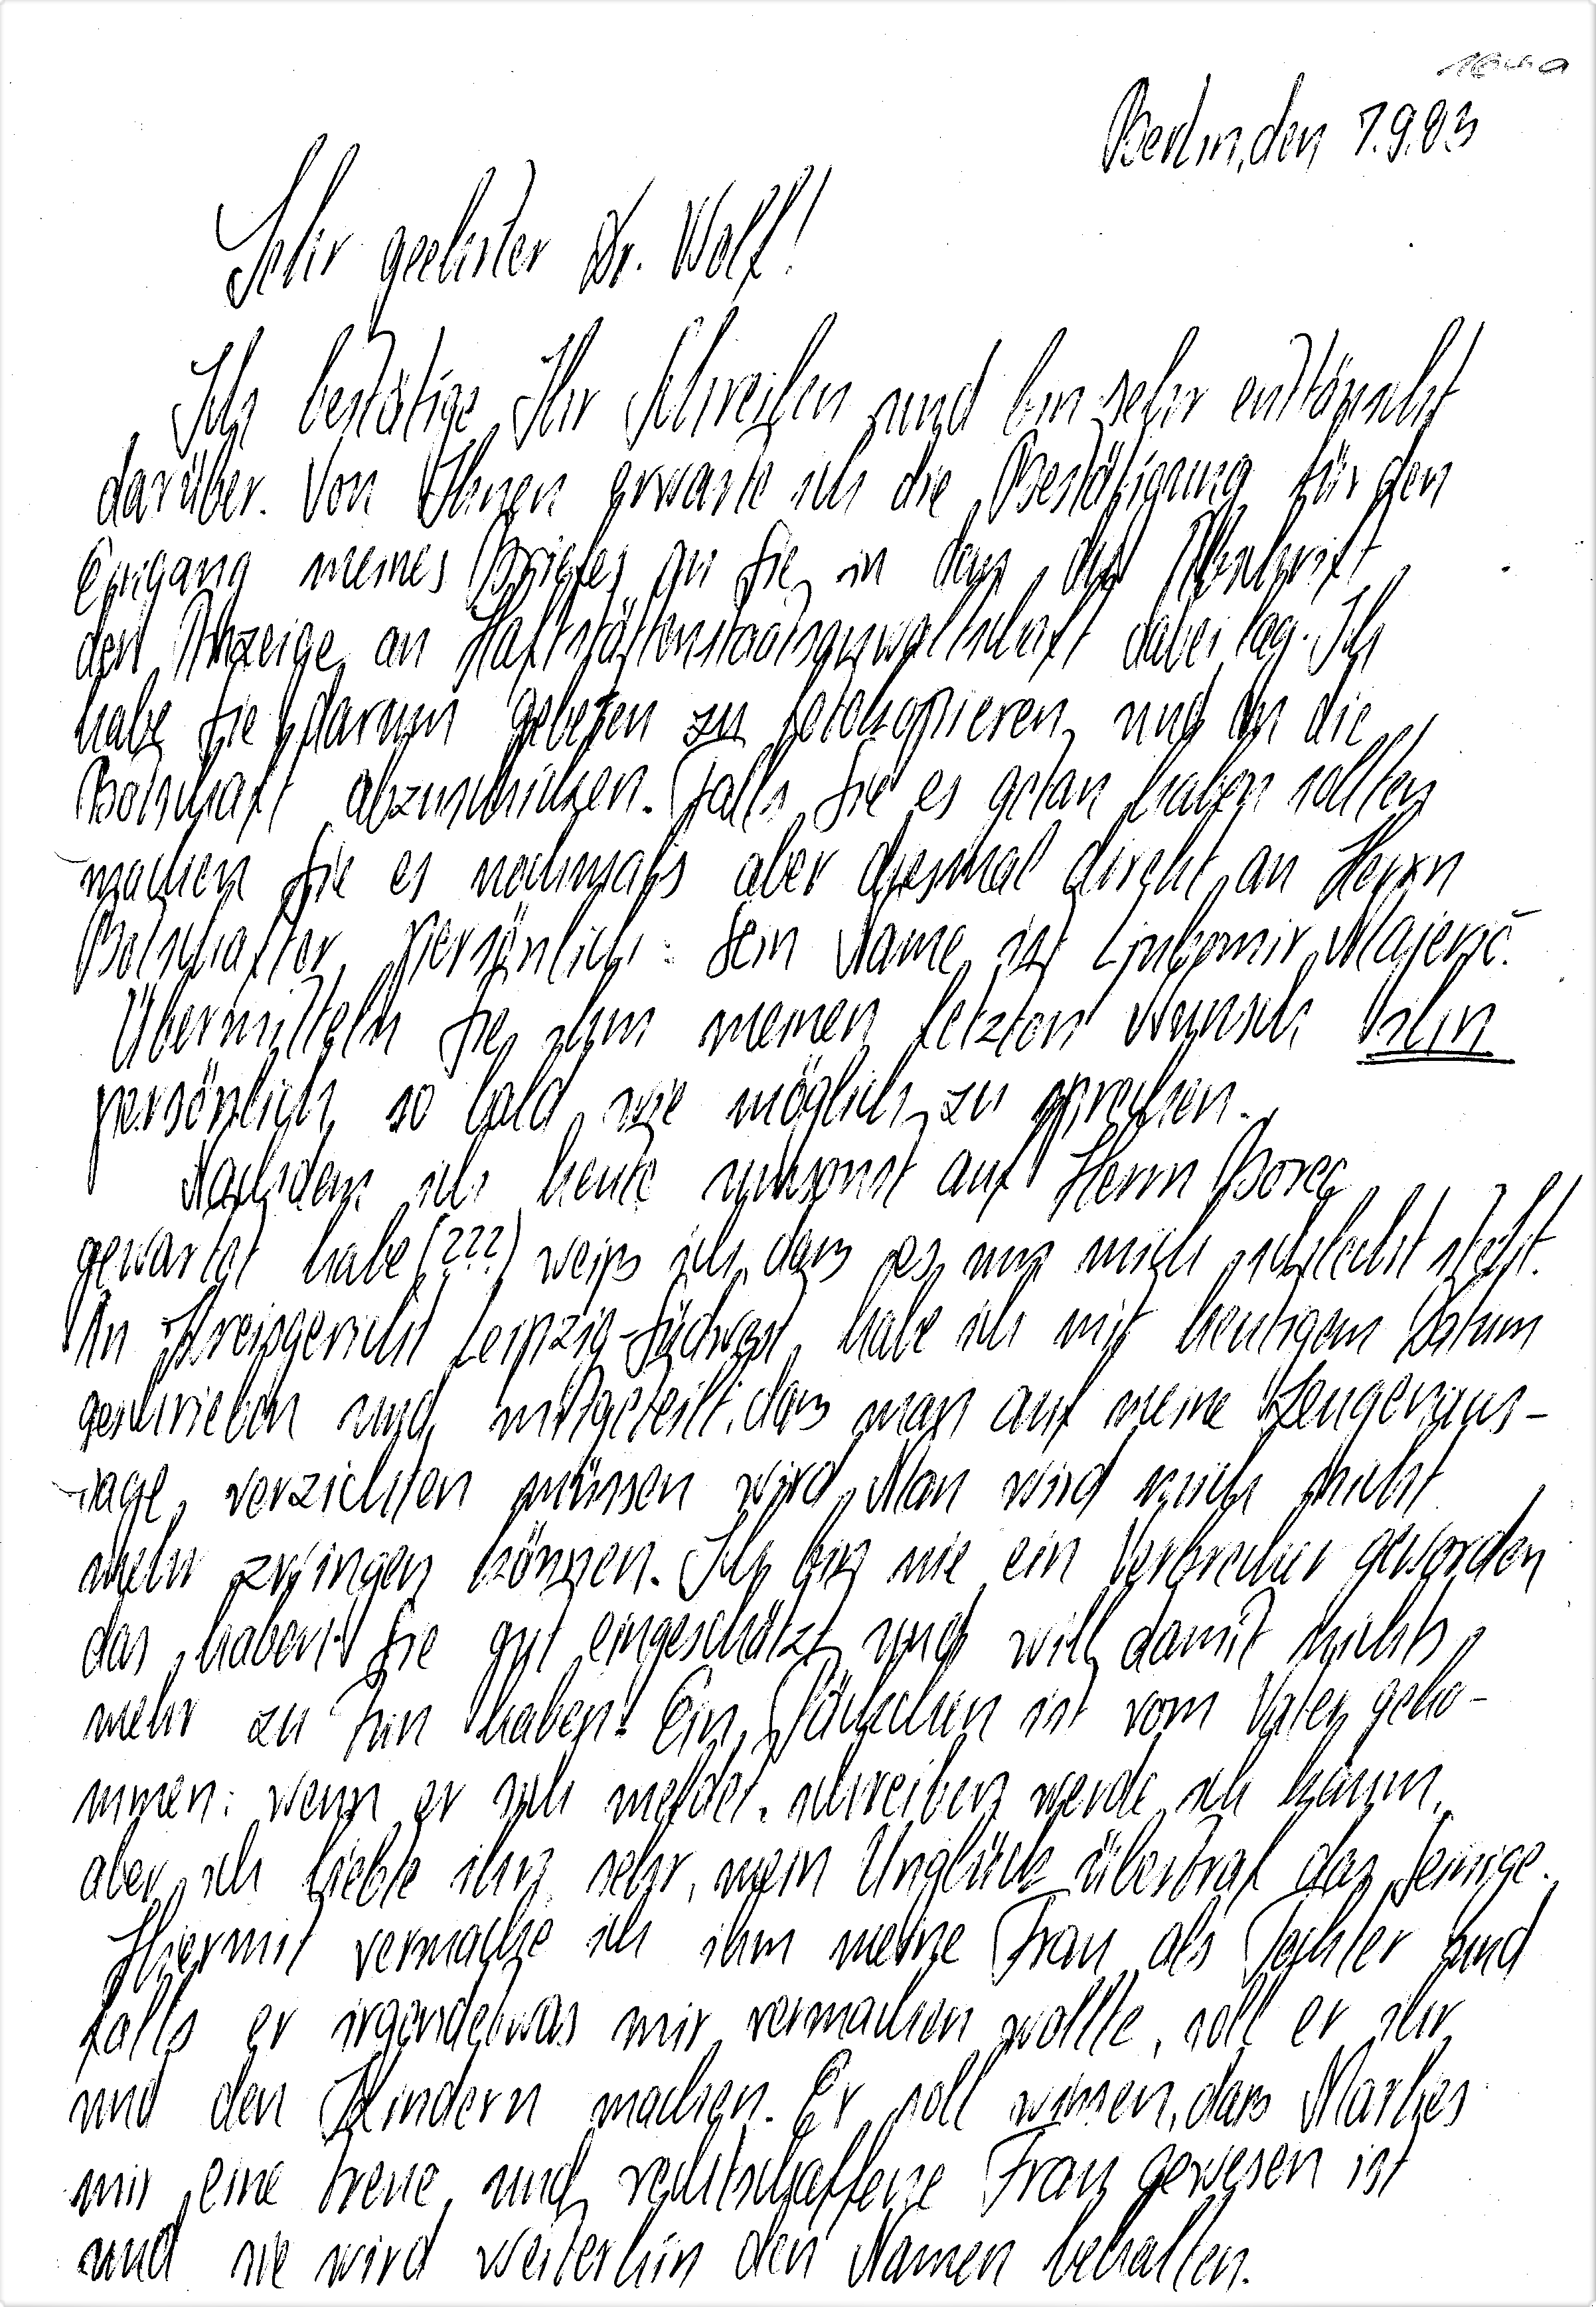 Berlin, den 7.9.83
Sehr geehrter Dr. Wolf!
Ich bestätige Ihr Schreiben und bin sehr enttäuscht
darüber. Von Ihnen erwarte ich die Bestätigung für den
Eingang meines Briefes an Sie, in dem die Abschrift
der Anzeige an Haftstättenstaatsanwaltschaft dabei lag. Ich
habe Sie darum gebeten zu fotokopieren und an die
Botschaft abzuschicken. Falls Sie es getan haben sollten
machen Sie es nochmals aber diesmal direkt an Herrn
Botschafter persönlich: Sein Name ist Ljubomir Majerič.
Übermitteln Sie ihm meinen letzten Wunsch ihn
persönlich so bald wie möglich zu sprechen.
Nachdem ich heute umsonst auf Herrn Borec
gewartet habe (???) weiß ich, dass es um mich schlecht steht.
An Kreisgericht Leipzig-Südwest habe ich mit heutigem Datum
geschrieben und mitgeteilt, dass man auf meine Zeugenaus-
sage verzichten müssen wird. Man wird mich nicht
mehr zwingen können. Ich bin nie ein Verbrecher geworden
das haben Sie gut eingeschätzt und will damit nichts
mehr zu tun haben! Ein Päckchen ist vom Vater geko-
mmen: wenn er sich meldet, schreiben werde ich kaum,
aber ich liebte ihn sehr, mein Unglück übertraf das Seinige.
Hiermit vermache ich ihm meine Frau als Tochter und
falls er irgendetwas mir vermachen wollte, soll er ihr
und den Kindern machen. Er soll wissen, dass Marlies
mir eine treue und rechtschaffene Frau gewesen ist
und sie wird weiterhin den Namen behalten.